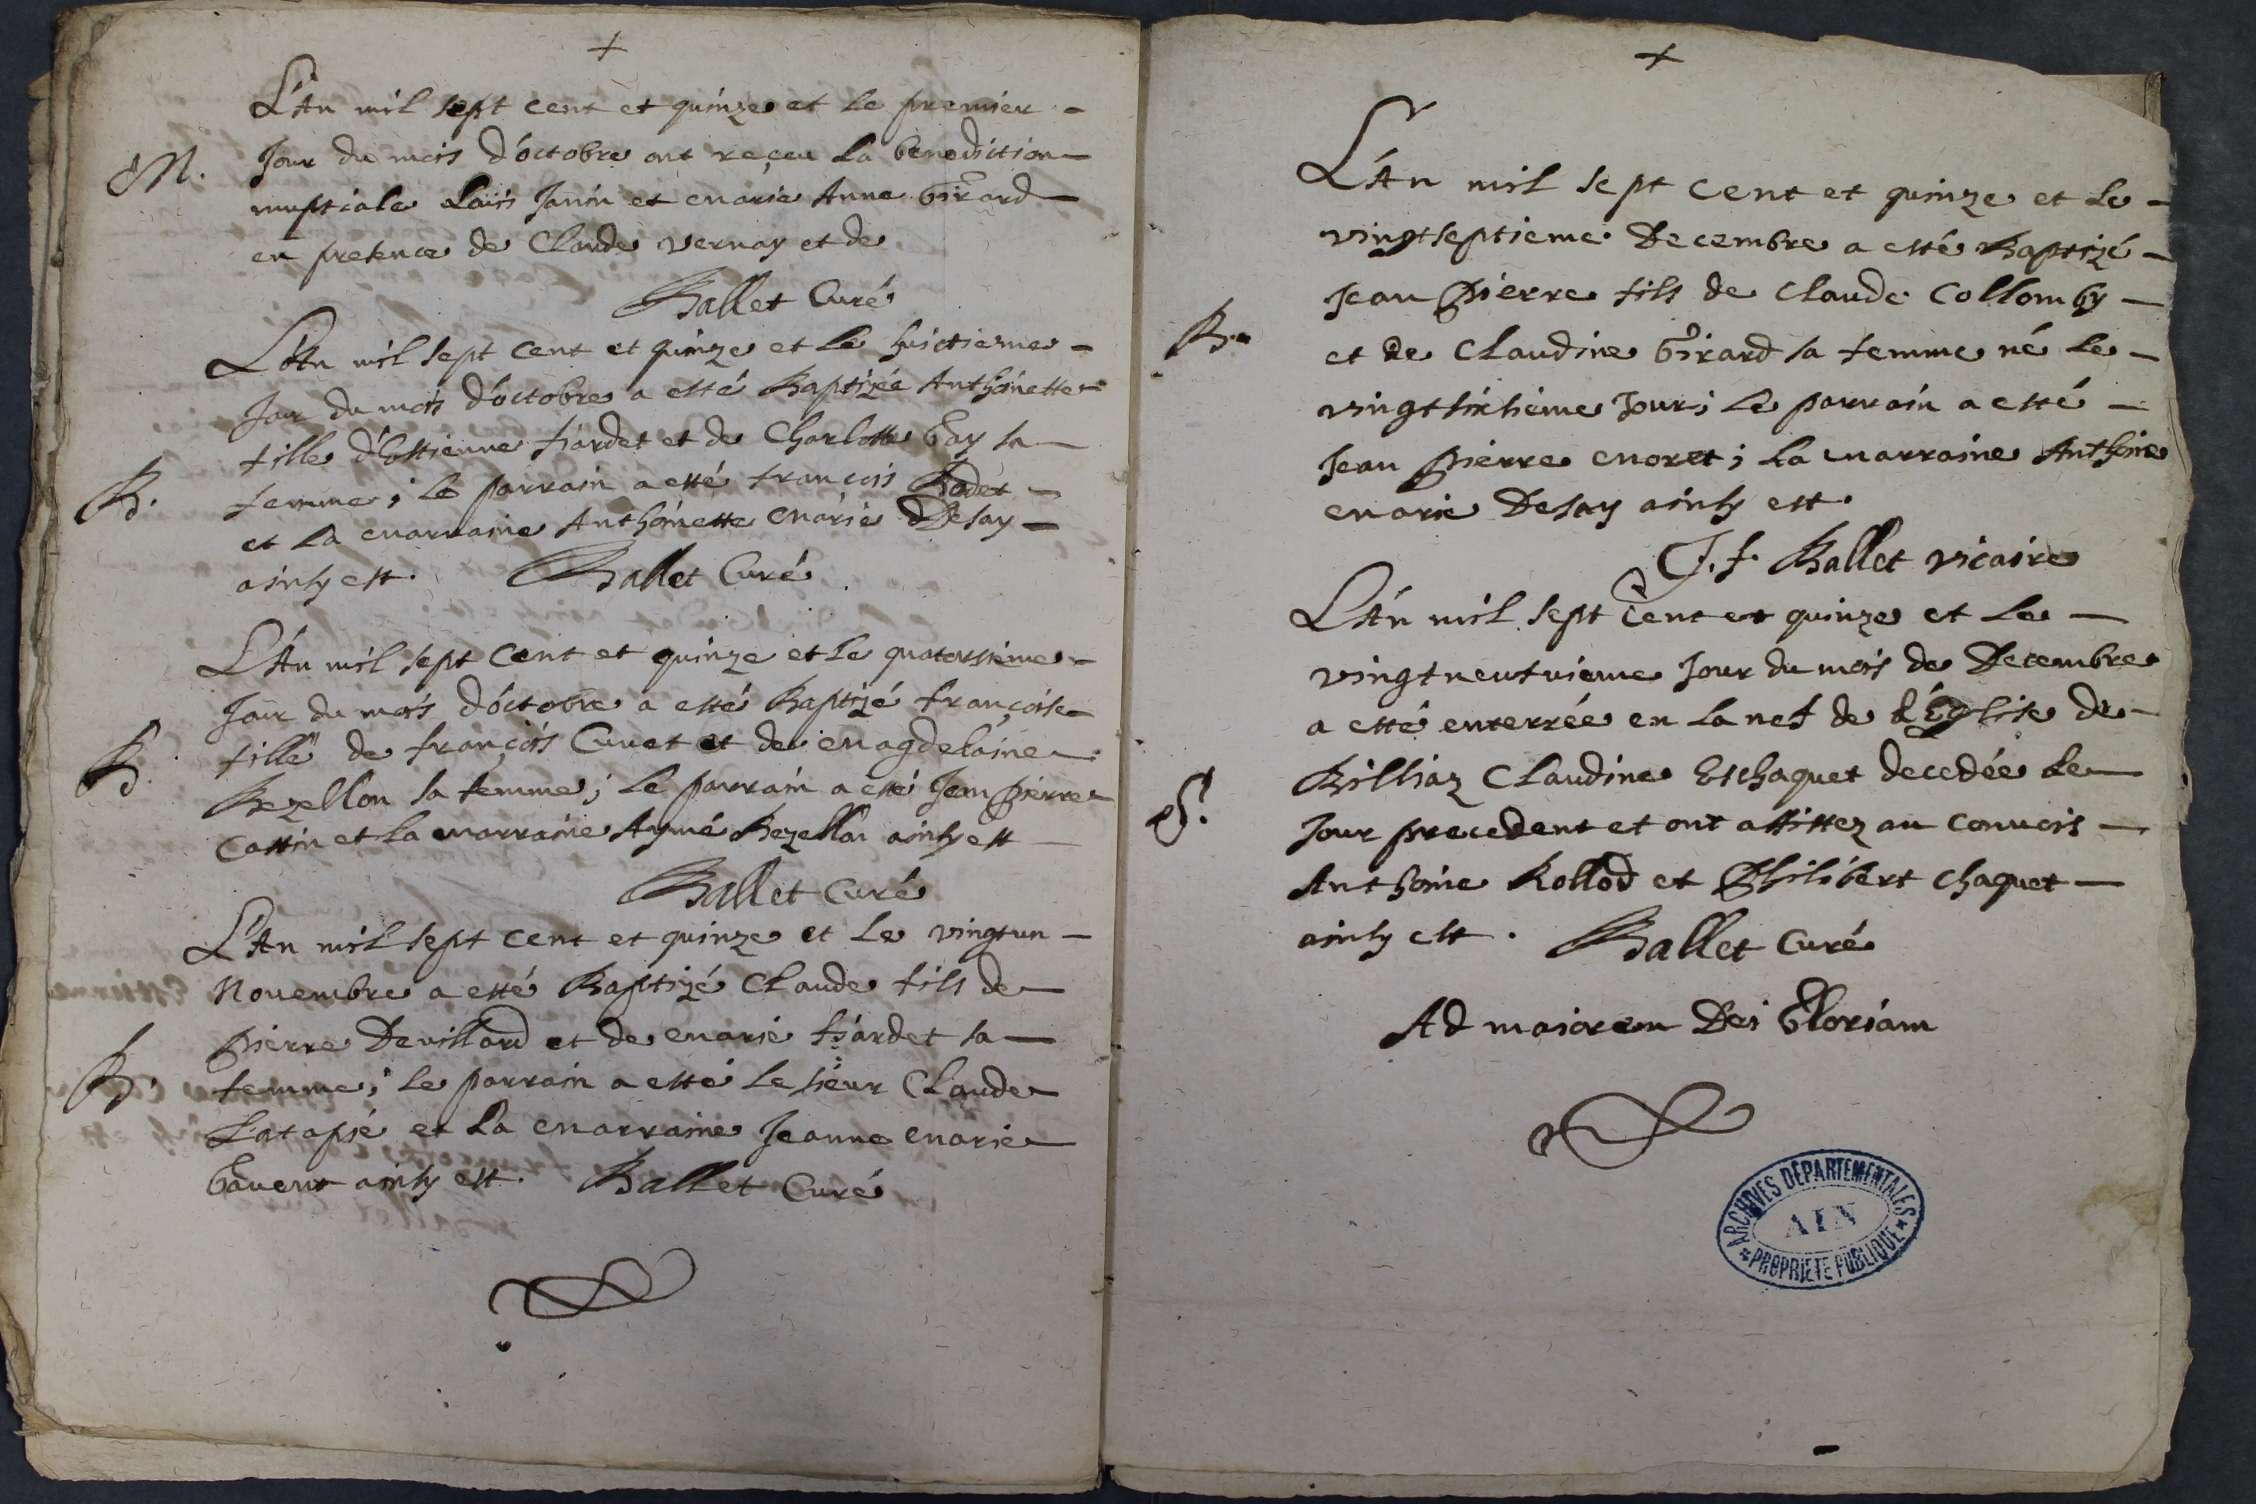 +
L'An mil sept cent et quinze et le premier -
M. Jour du mois d'octobre ont reçeu la benediction -
nuptiale Loüis Janin et marie Anne Girard -
en presence de Claude vernay et de
Ballet Curé
L'An mil sept cent et quinze et le huictieme -
Jour du mois d'octobre a esté Baptizée Anthoinette -
fille d'Estienne tiardet et de Charlotte Gay sa -
B. femme; le parrain a esté francois Bodet -
et la marraine Anthoinette marie Desay -
ainsy est. Ballet Curé
L'An mil sept cent et quinze et le quatorsieme -
Jour du mois d'octobre a esté Baptizé francoise -
B. fille de françois Cuvet et de magdelaine -
Bezellon sa femme; le parrain a esté Jean Pierre -
Cattin et la marraine Aymé Bezellon ainsy est -
Ballet Curé
L'An mil sept cent et quinze et le vingtun -
Novembre a esté Baptizé Claude fils de -
Pierre Devillard et de marie tiardet sa -
B. femme; le parrain a esté le sieur Claude -
Latapie et la marraine Jeanne marie -
Gavent ainsy est. Ballet Curé
+
L'An mil sept cent et quinze et le -
vingtseptieme Decembre a esté Baptizé -
Jean Pierre fils de Claude Collomby -
B. et de Claudine Girard sa femme né le -
vingtsixsieme Jour; le parrain a esté -
Jean Pierre moret; la marraine Anthoine
marie Desay ainsy est.
J. f. Ballet vicaire
L'An mil sept cent et quinze et le -
vingtneufvieme Jour du mois de Decembre
a esté enterrée en la nef de l'Eglise de -
Billiaz Claudine Eschaquet decedée le -
S. Jour precedent et ont assistez au convois -
Anthoine Rollod et Philibert chaquet -
ainsy est. Ballet Curé
Ad maiorem Dei Gloriam
ARCHIVES DÉPARTEMENTALES
AIN
* PROPRIÉTÉ PUBLIQUE *